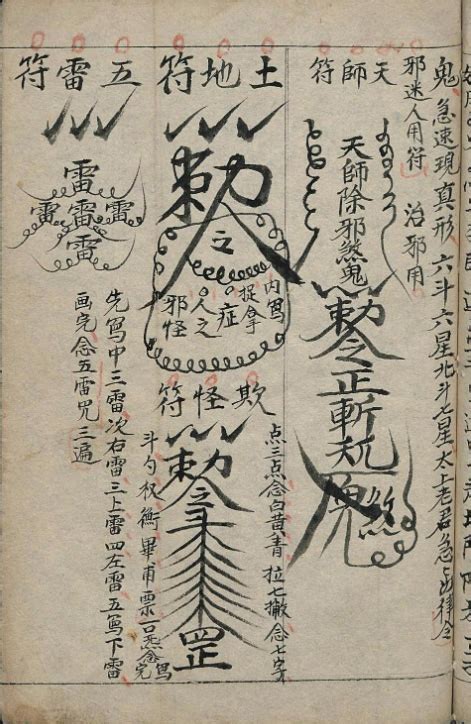 鬼急速現真形六斗六星北斗七星太上老君急急如律令
邪迷人用符 治邪用
天師符
天師除邪煞鬼
勅令正斬
鬼
煞
土地符
勅令
之
内寫
捉拿
症
人之
邪怪
欺怪符
点三点念白黄青 拉七撇念七字
勅令斗罡
斗勺权衡畢甫票一口炁念完
五雷符
雷
雷雷雷
雷
先寫中三雷次右雷三上雷四左雷五寫下雷
画完念五雷咒三遍